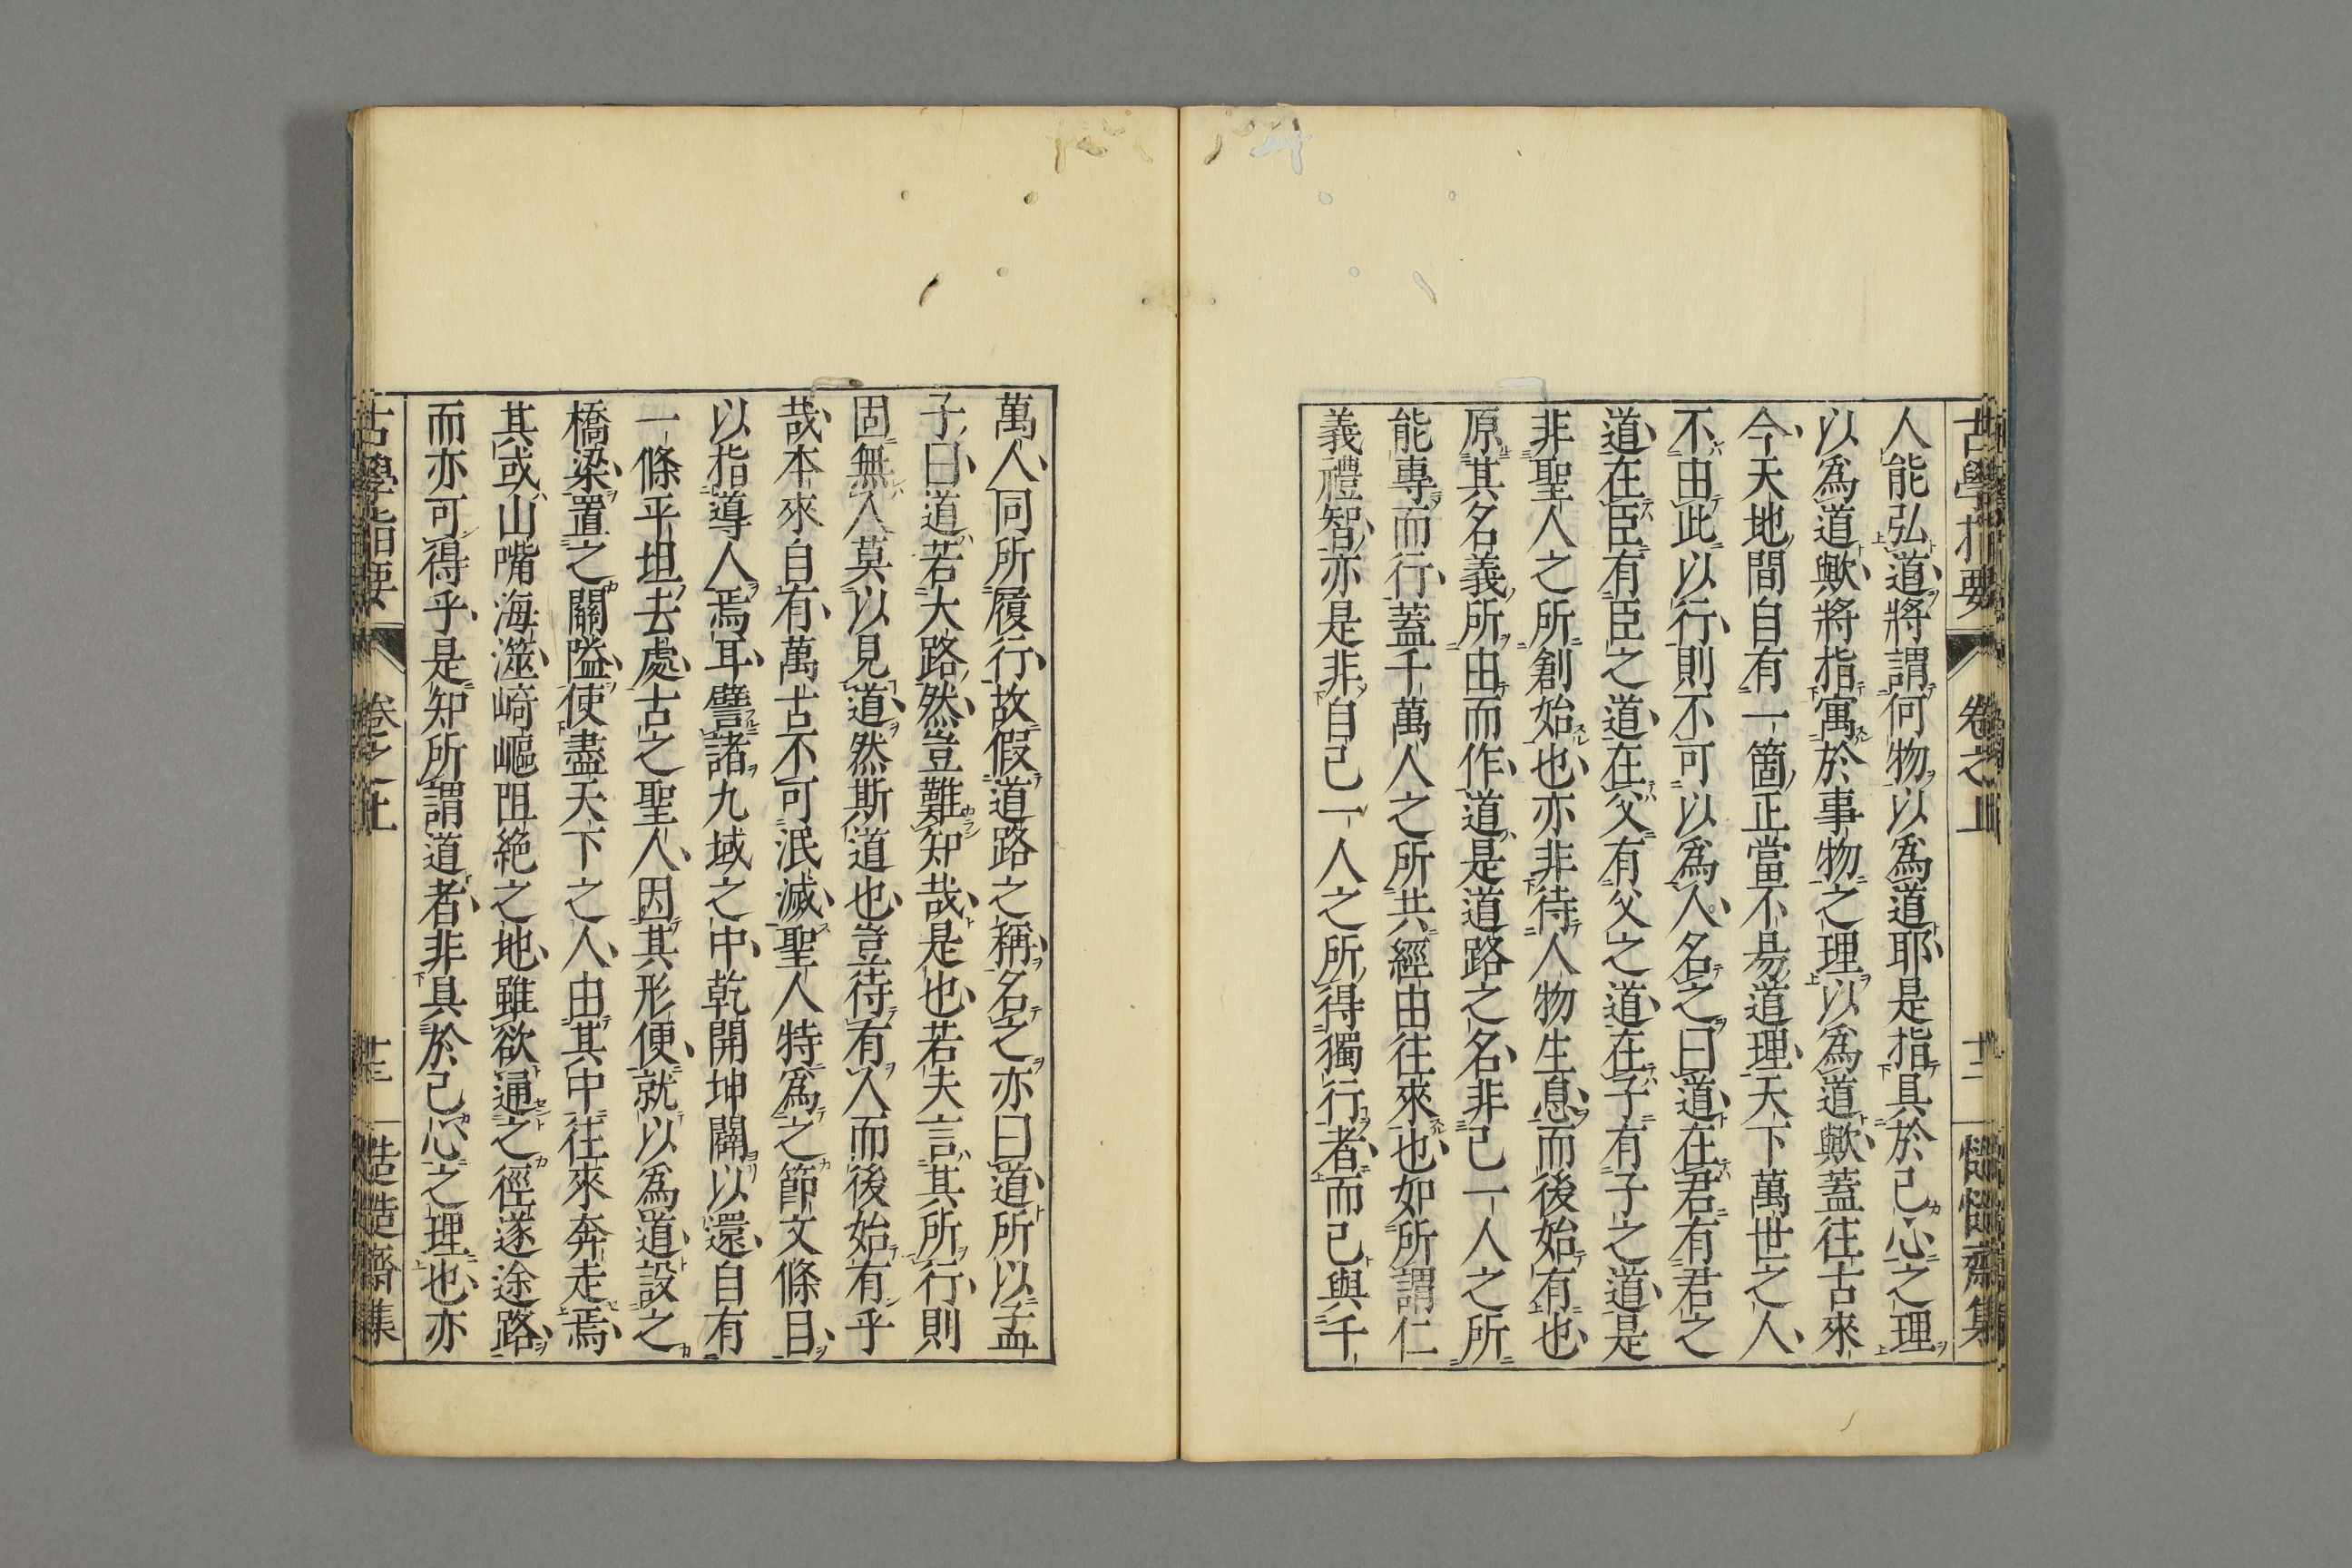 古學指要 卷之上 十二 慥慥齋集
人能弘道將謂何物以爲道耶是指具於己心之理
以爲道歟將指寓於事物之理以爲道歟蓋往古來
今天地間自有一箇正當不易道理天下萬世之人
不由此以行則不可以爲人名之曰道在君有君之
道在臣有臣之道在父有父之道在子有子之道是
非聖人之所創始也亦非待人物生息而後始有也
原其名義所由而作道是道路之名非己一人之所
能專而行蓋千萬人之所共經由往來也如所謂仁
義禮智亦是非自己一人之所得獨行者而已與千
萬人同所履行故假道路之稱名之亦曰道所以孟
子曰道若大路然豈難知哉是也若夫言其所行則
固無人莫以見道然斯道也豈待有人而後始有乎
哉本來自有萬古不可泯滅聖人特爲之節文條目
以指導人焉耳譬諸九域之中乾開坤闢以還自有
一條平坦去處古之聖人因其形便就以爲道設之
橋梁置之關隘使盡天下之人由其中往來奔走焉
其或山嘴海澨崎嶇阻絶之地雖欲通之徑遂途路
而亦可得乎是知所謂道者非具於己心之理也亦
古學指要 卷之上 十三 慥慥齋集